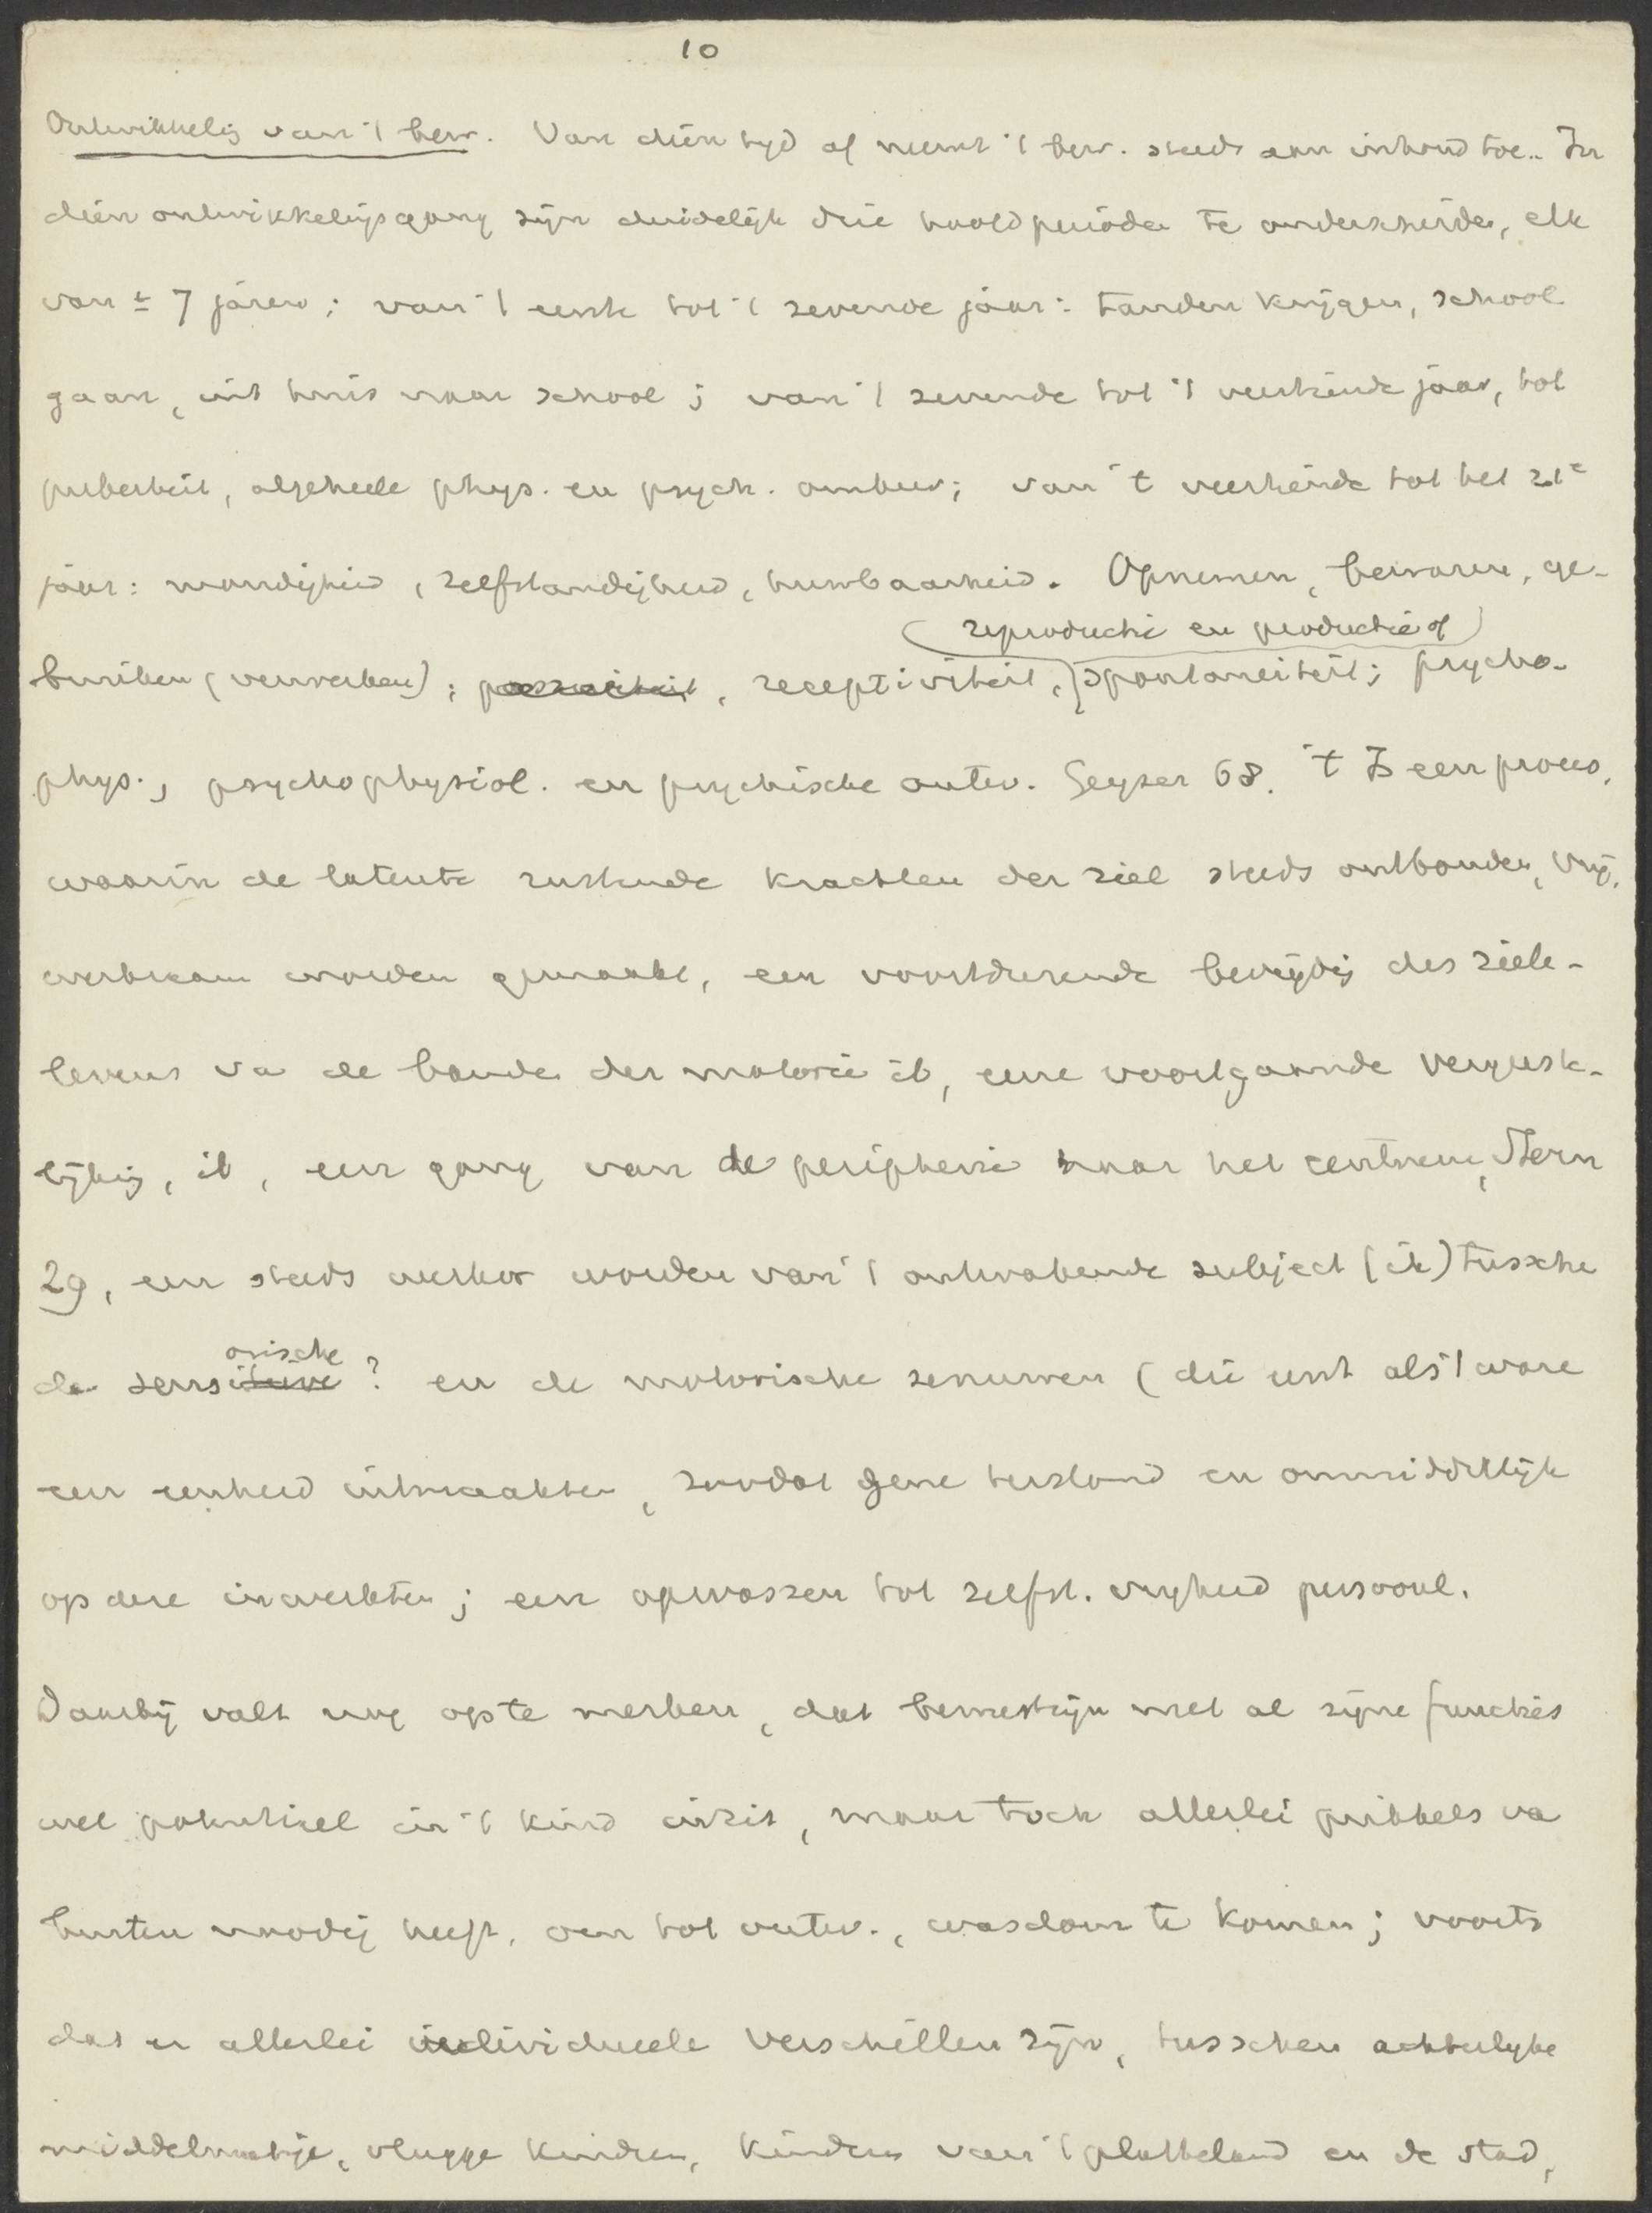 10
Ontwikkelig van 't bew. Van dien tyd af neemt 't bew. steeds aan inhoud toe. In
dien ontwikkeligsgang zijn duidelijk drie hoofdperioden te onderscheiden, elk
van ± 7 jaren; van 't eerste tot 't zevende jaar: tanden krijgen, school
gaan, uit huis naar school; van 't zevende tot 't veertiende jaar, tot
puberteit, algeheele phys. en psych. ombouw; van 't veertiende tot het 21e
jaar: mondigheid, zelfstandigheid, huwbaarheid. Opnemen, bewaren, ge-
(reproductie en productie of)
bruiken (verwerken); passiviteit, receptiviteit, spontaneiteit; psycho-
phys., psychophysiol. en psychische ontw. Geyser 68. 't Is een proces,
waarin de latente rustende krachten der ziel steeds ontbonden, vrij,
werkzaam worden gemaakt, een voortdurende bevrijdig des ziele-
levens va de banden der materie ib, eene voortgaande vergeeste-
lijkig, ib, een gang van de peripherie naar het centrum, Stern
29, een steeds sterker worden van 't ontwakende subject (ik) tussche
orische
de sensitieve? en de motorische zenuwen (die eerst als 't ware
een eenheid uitmaakten, zoodat gene terstond en onmiddellijk
op deze inwerkten; een opwassen tot zelfst. vrijheid persoonl.
Daarbij valt nog op te merken, dat bewustzijn met al zijne functies
wel potentieel in 't kind inzit, maar toch allerlei prikkels va
buiten noodig heeft, om tot ontw., wasdom te komen; voorts
dat er allerlei individueele verschillen zijn, tusschen achterlyke
middelmatige, vlugge kinderen, kinderen van 't platteland en de stad,